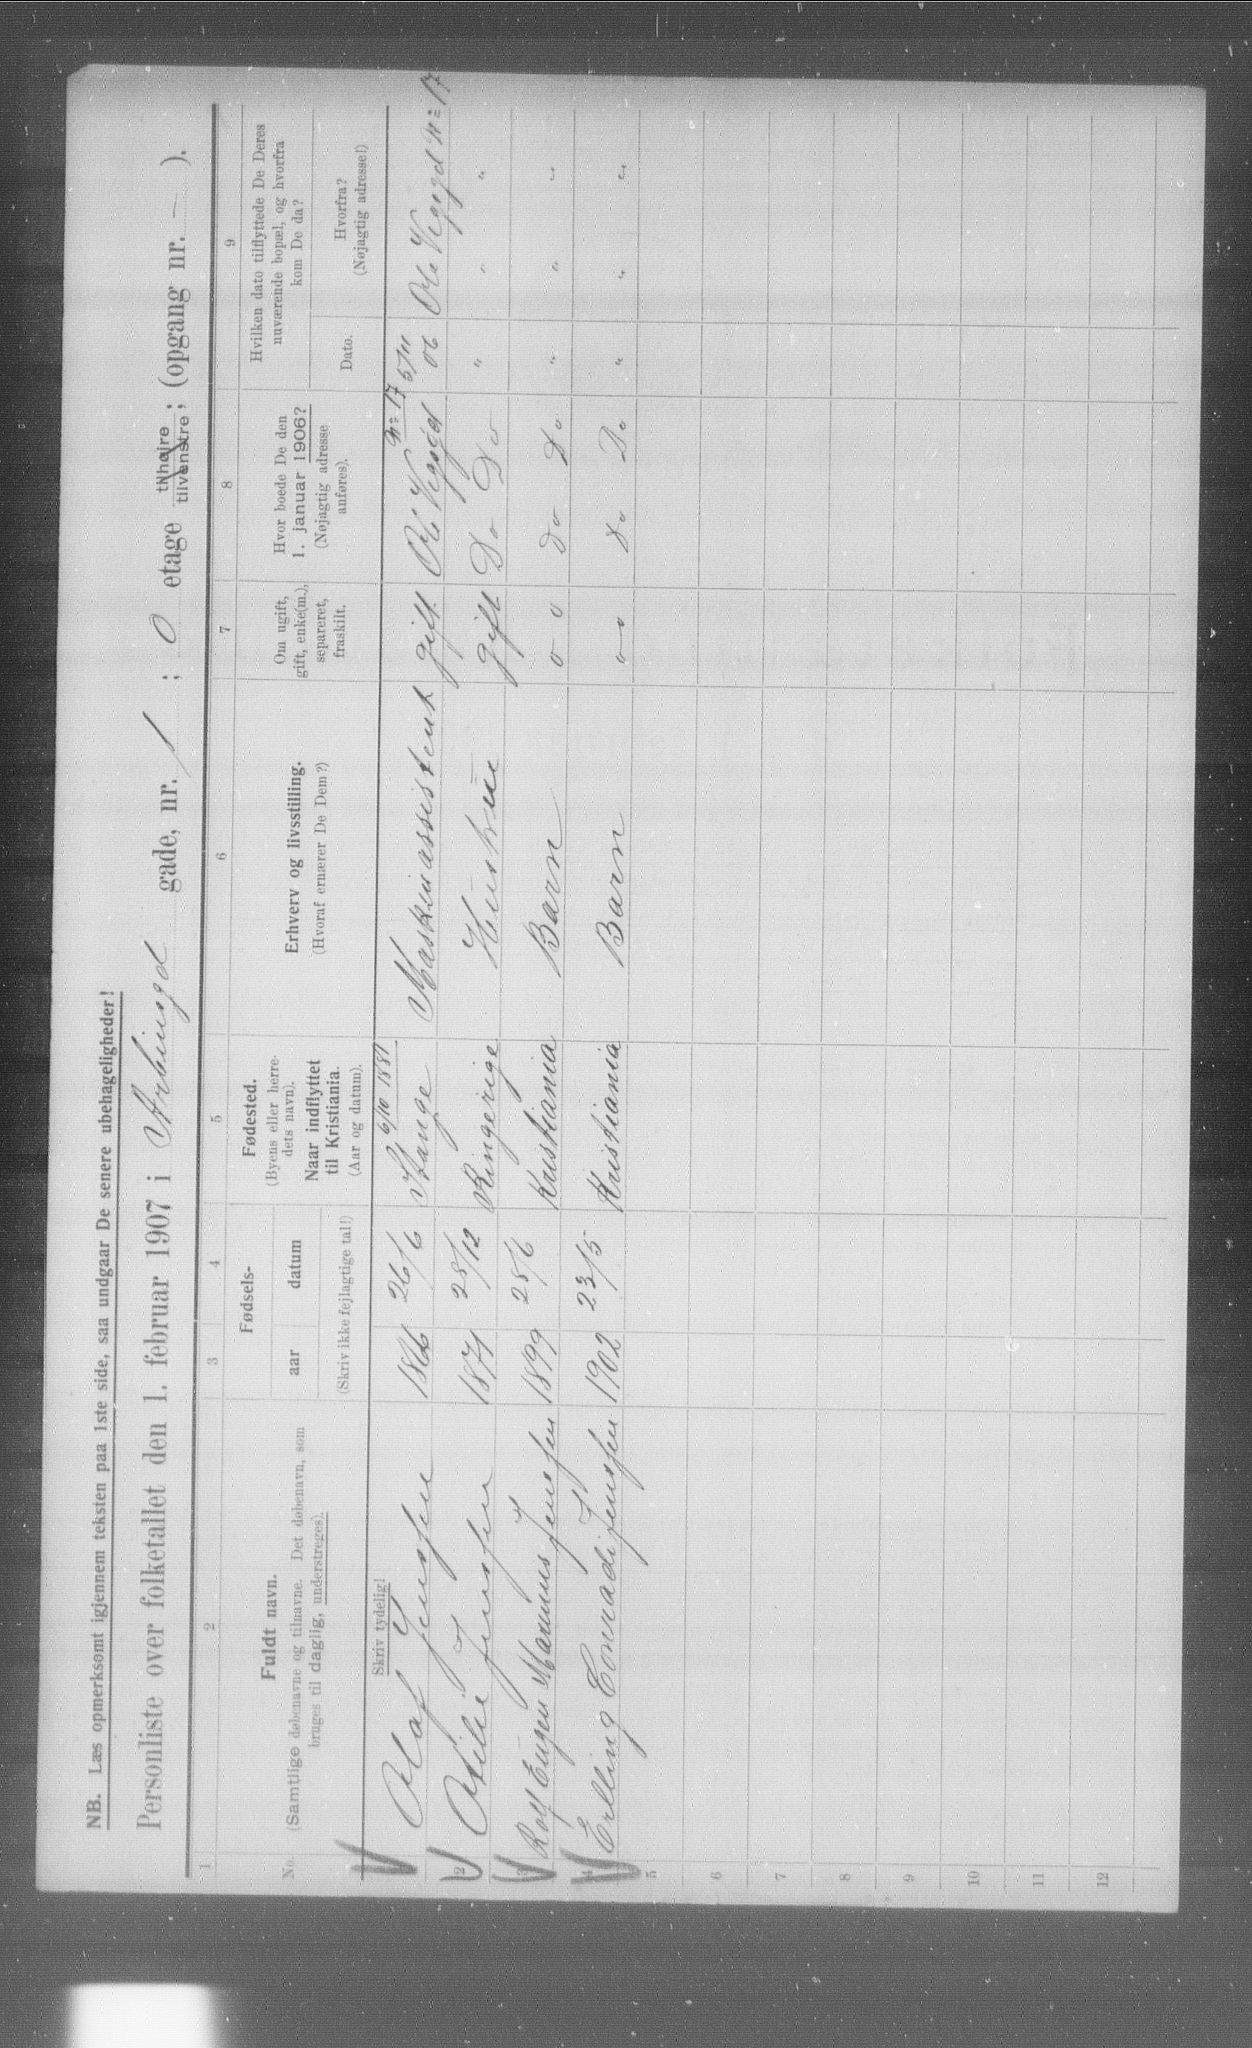 NB. Læs opmerksomt igjennem teksten paa 1ste side, saa undgaar De senere ubehageligheder!
Personliste over folketallet den 1. februar 1907 i Arbinsgd gade, nr. 1; 0 etage til højre tilvenstre; (opgang nr. — ).
1 2 3 4 5 6 7 8 9
No.
Fuldt navn.
(Samtlige døbenavne og tilnavne. Det døbenavn, som
bruges til daglig, understreges).
Skriv tydelig!
Fødsels-
aar datum
(Skriv ikke fejlagtige tal!)
Fødested.
(Byens eller herre-
dets navn).
Naar indflyttet
til Kristiania.
(Aar og datum).
Erhverv og livsstilling.
(Hvoraf ernærer De Dem?)
Om ugift,
gift, enke(m.),
separeret,
fraskilt.
Hvor boede De den
1. januar 1906?
(Nøjagtig adresse
anføres).
Hvilken dato tilflyttede De Deres
nuværende bopæl, og hvorfra
kom De da?
Dato.
Hvorfra?
(Nøjagtig adresse!)
6/10 1881 No 17 5/11
Olaf Jenssen 1866 26/6 Stange Maskinassistent gift Ole Vigsgd 06 Ole Vigsgd No 17
2 Otilie Jenssen 1871 28/12 Ringerige Hustrue gift Do Do " " "
3 Rolf Eugen Marinus Jenssen 1899 28/6 Kristiania Barn o o Do Do " " "
4 Erlling Conradi Jenssen 1902 23/5 Kristiania Barn o o Do Do " " "
5
6
7
8
9
10
11
12